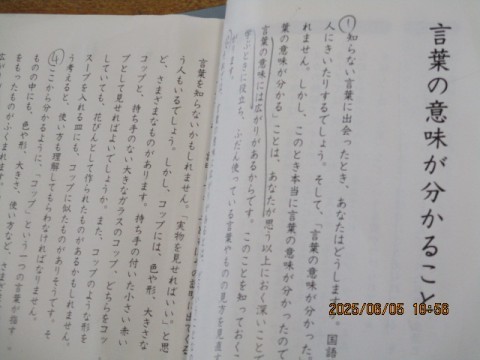 言葉の意味が分かること
① 知らない言葉に出会ったとき、あなたはどうしますか。国語
人にきいたりするでしょう。そして、「言葉の意味が分かった。
れません。しかし、このとき本当に言葉の意味が分かったので
葉の意味が分かる」ことは、あなたが思う以上におく深いことで
言葉の意味には広がりがあるからです。このことを知っておくこ
学ぶときに役立ち、ふだん使っている言葉やものの見方を見直す
ります。
言葉を知らないかもしれません。「実物を見せればいい。」と思
う人もいるでしょう。しかし、コップには、色や形、大きさな
ど、さまざまなものがあります。持ち手の付いた小さい赤い
コップと、持ち手のない大きなガラスのコップ、どちらをコッ
プとして見せればよいでしょうか。また、コップのような形を
していても、花びんとして作られたものがあるかもしれません。
スープを入れる皿にも、コップに似たものがありそうです。そ
う考えると、使い方も理解してもらわなければなりません。
④ ここから分かるように、「コップ」という一つの言葉が指す
ものの中にも、色や形、大きさ、使い方など、さまざま
をもったものがふくまれます。
2025/06/05 16:56